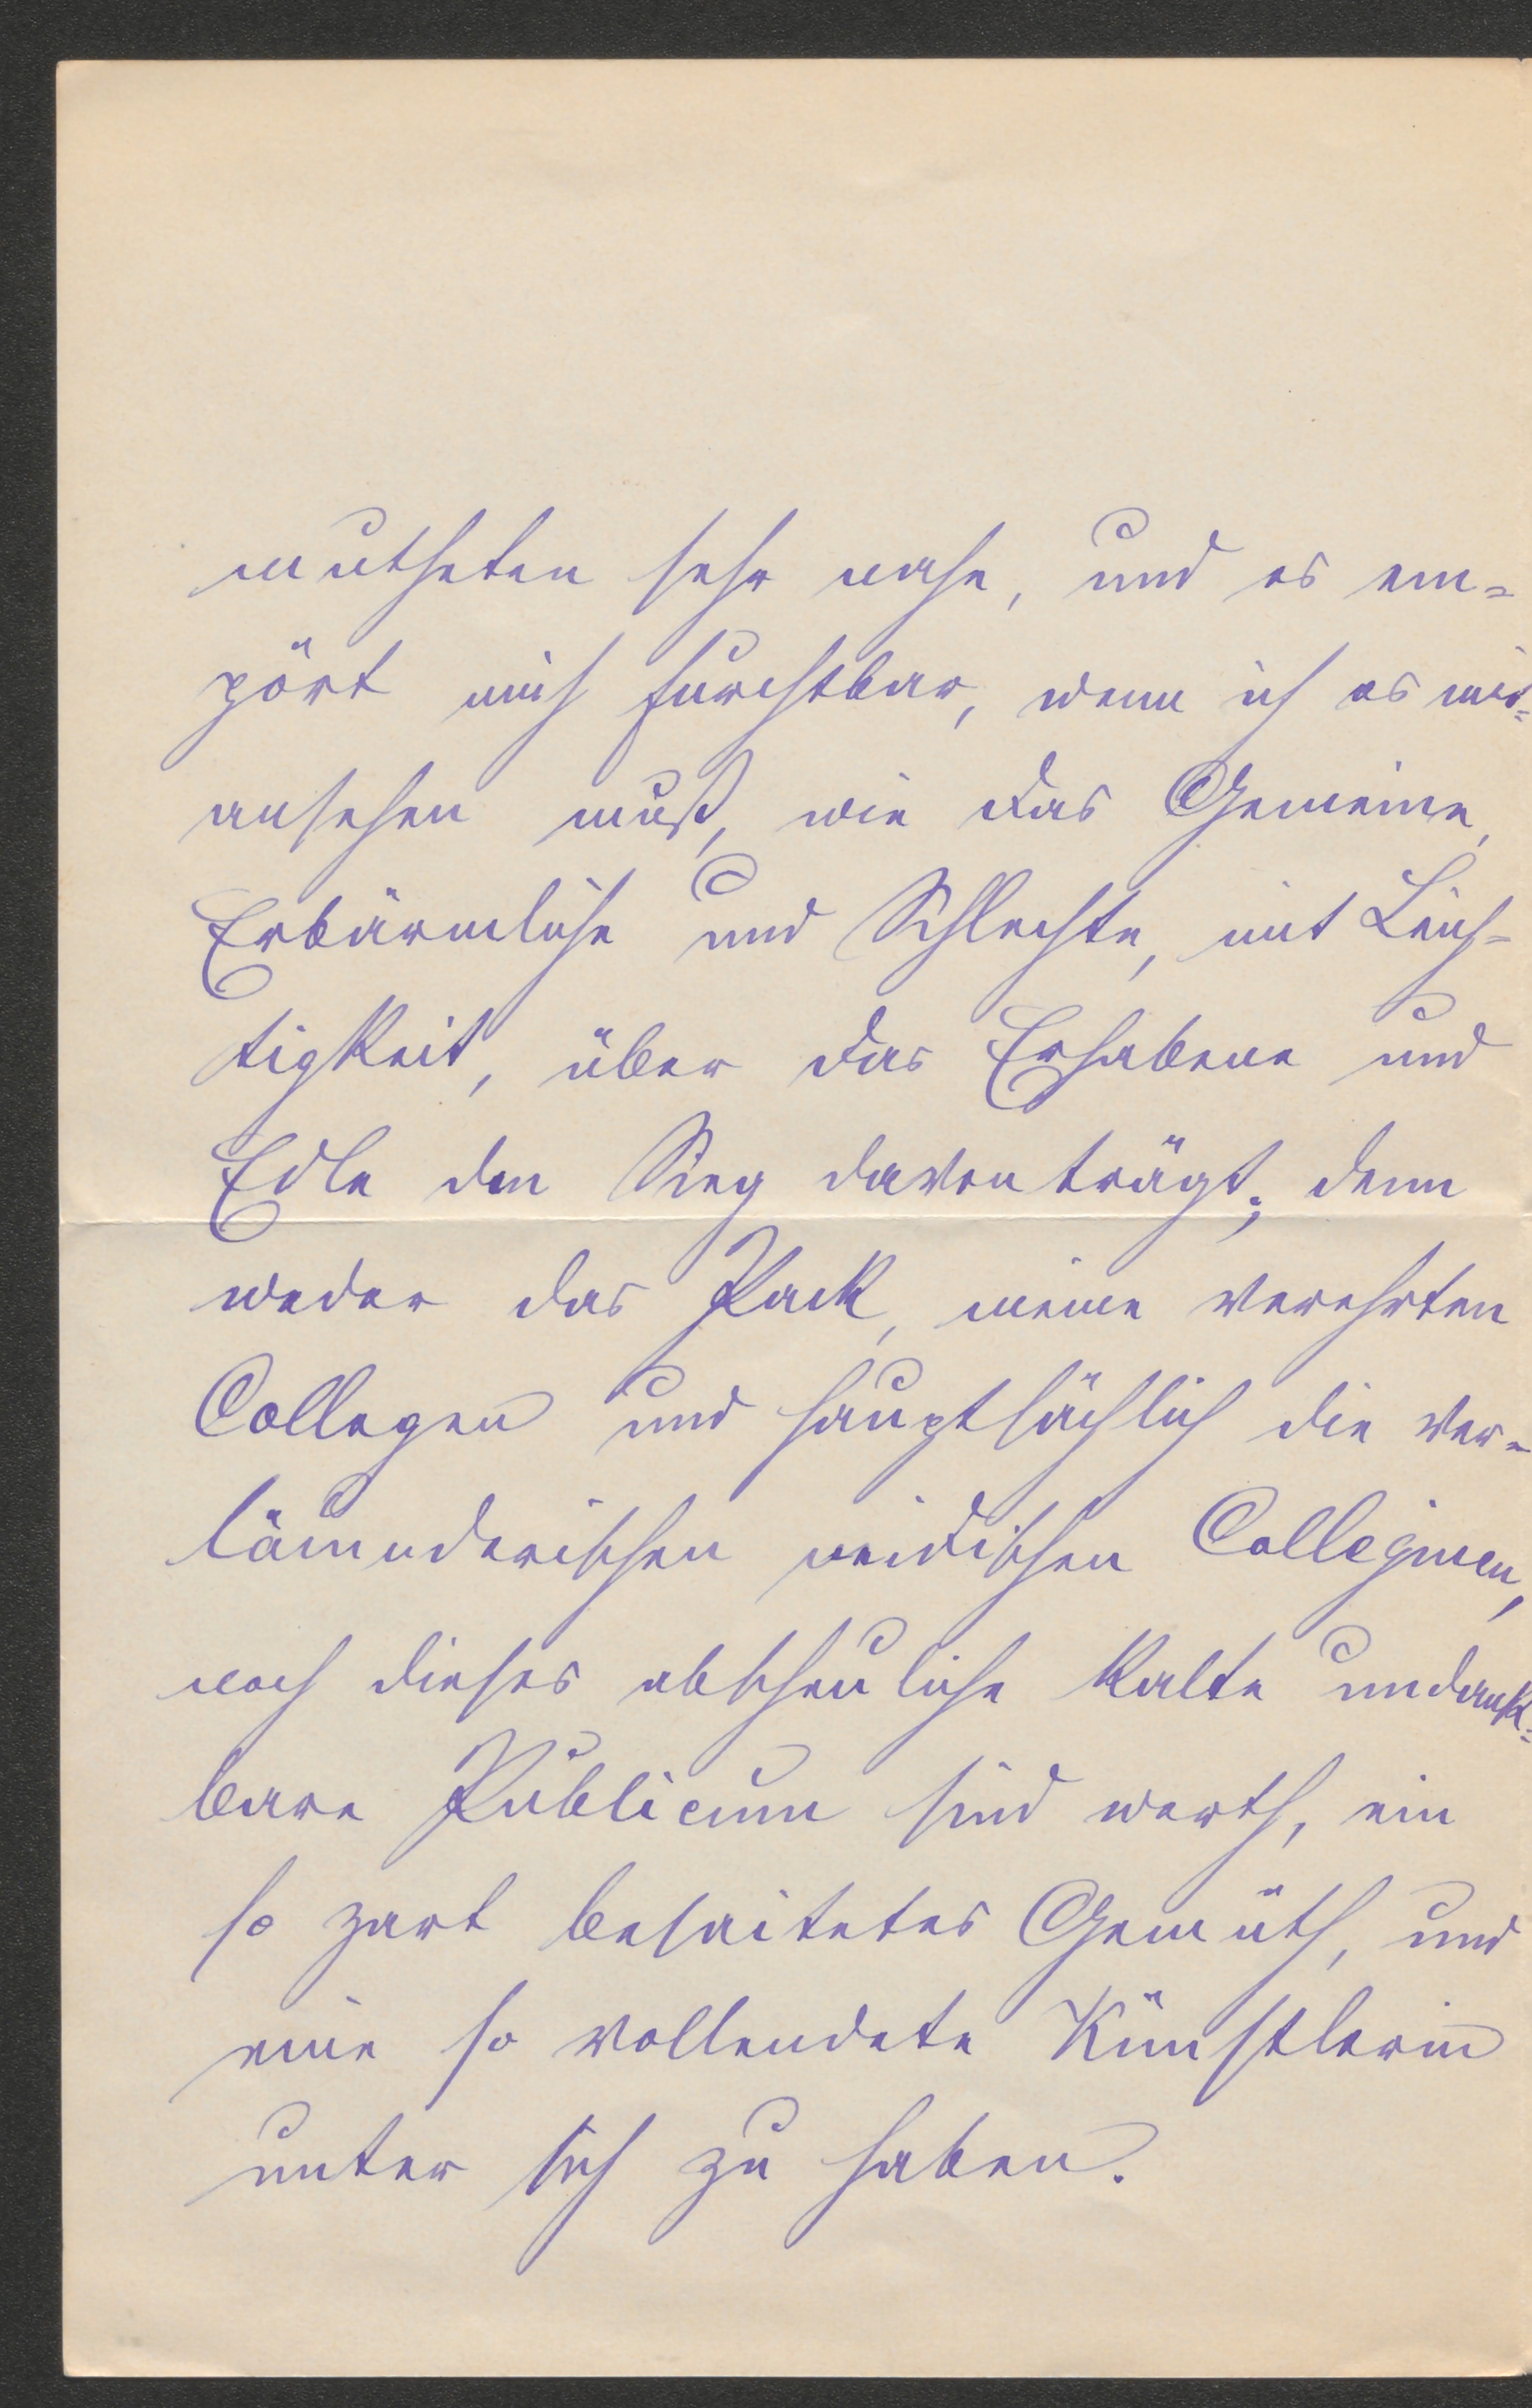 mutheten sehr nahe, und es em=
pört mich furchtbar, wenn ich es mit=
ansehen muß, wie das Gemeine,
Erbärmliche und Schlechte, mit Leich=
tigkeit, über das Erhabene und
Edle den Sieg davon trägt; denn
weder das Pack, meine verehrten
Collegen und hauptsächlich die ver=
läumderischen neidischen Colleginen,
noch dieses abscheuliche kalte undank=
bare Publicum sind werth, ein
so zart besaitetes Gemüth, und
eine so vollendete Künstlerin
unter sich zu haben.